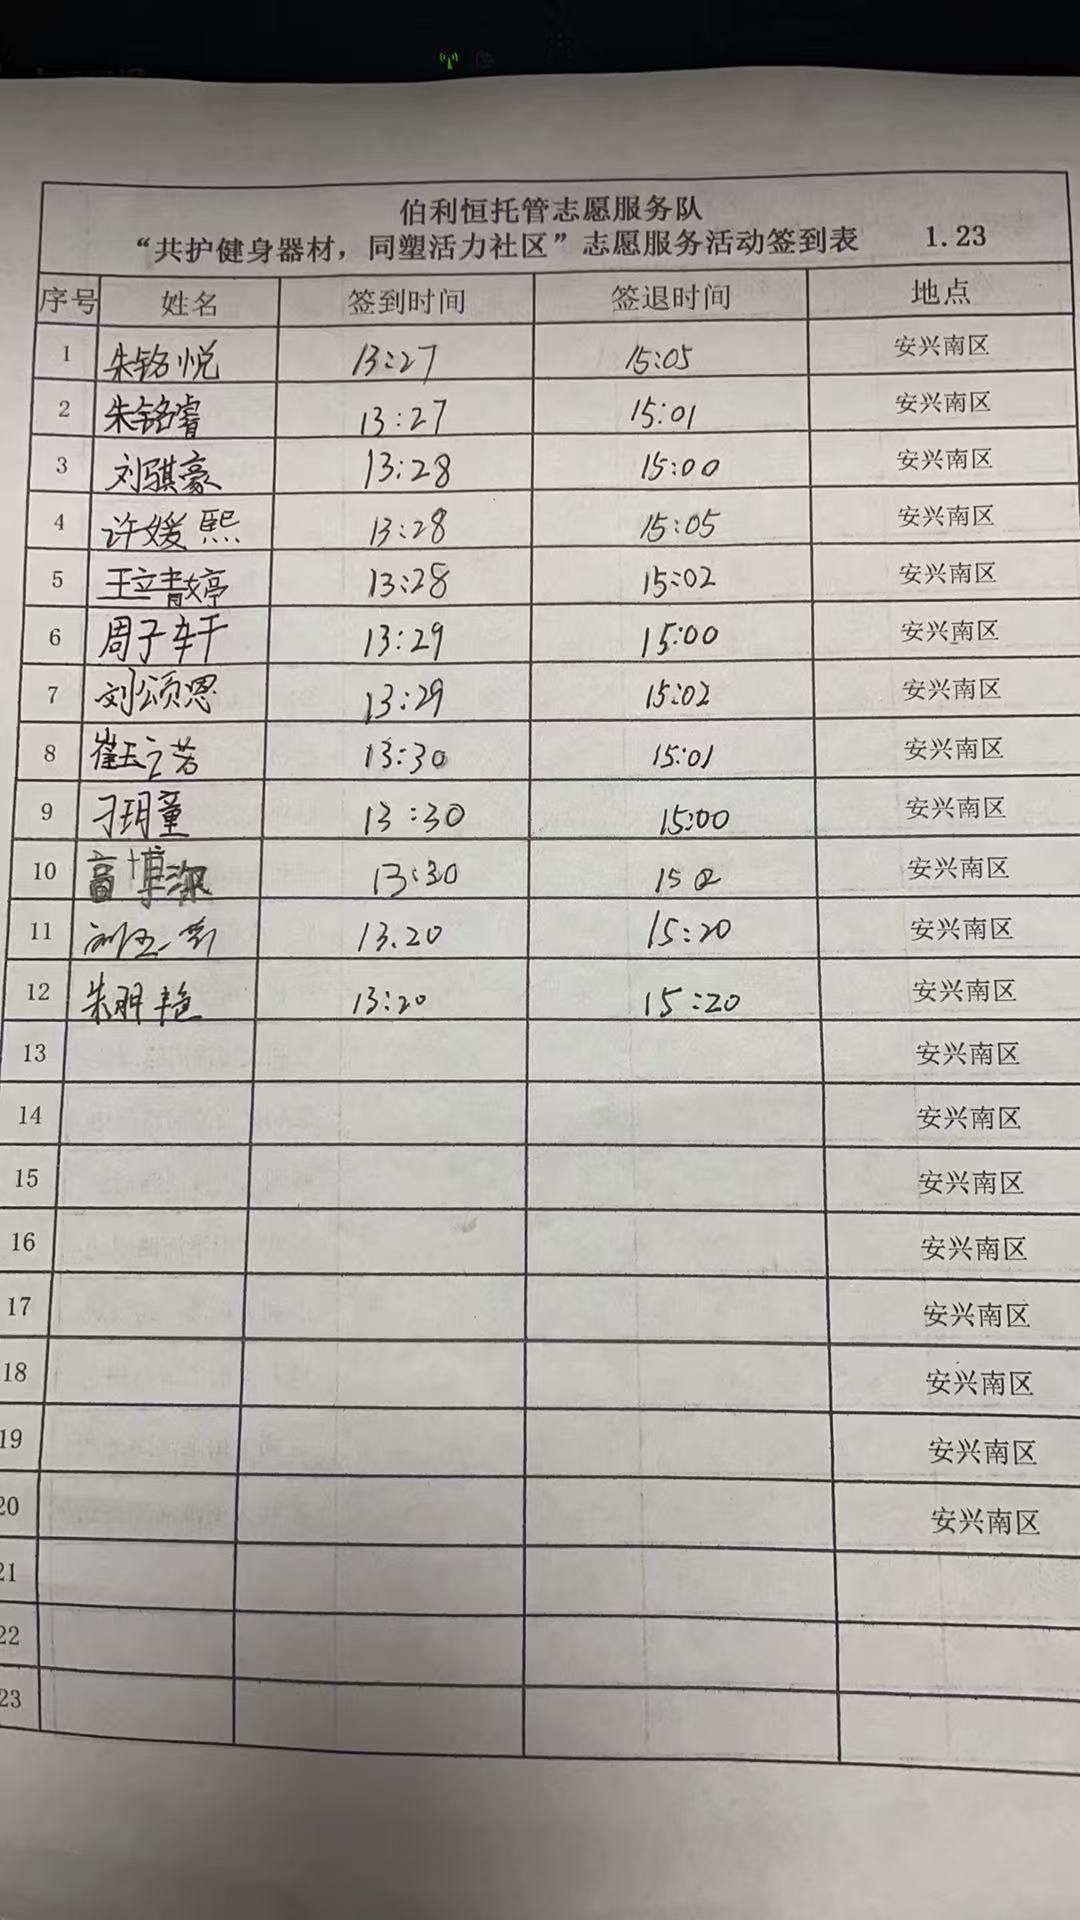 伯利恒托管志愿服务队
“共护健身器材，同塑活力社区”志愿服务活动签到表 1.23
序号 姓名 签到时间 签退时间 地点
1 朱铭悦 13:27 15:05 安兴南区
2 朱铭睿 13:27 15:01 安兴南区
3 刘骐豪 13:28 15:00 安兴南区
4 许媛熙 13:28 15:05 安兴南区
5 王立婷 13:28 15:02 安兴南区
6 周子轩 13:29 15:00 安兴南区
7 刘颂恩 13:29 15:02 安兴南区
8 崔之若 13:30 15:01 安兴南区
9 刁玥童 13:30 15:00 安兴南区
10 高博深 13:30 安兴南区
11 13.20 15:20 安兴南区
12 朱艳 13:20 15:20 安兴南区
13 安兴南区
14 安兴南区
15 安兴南区
16 安兴南区
17 安兴南区
18 安兴南区
19 安兴南区
20 安兴南区
21
22
23